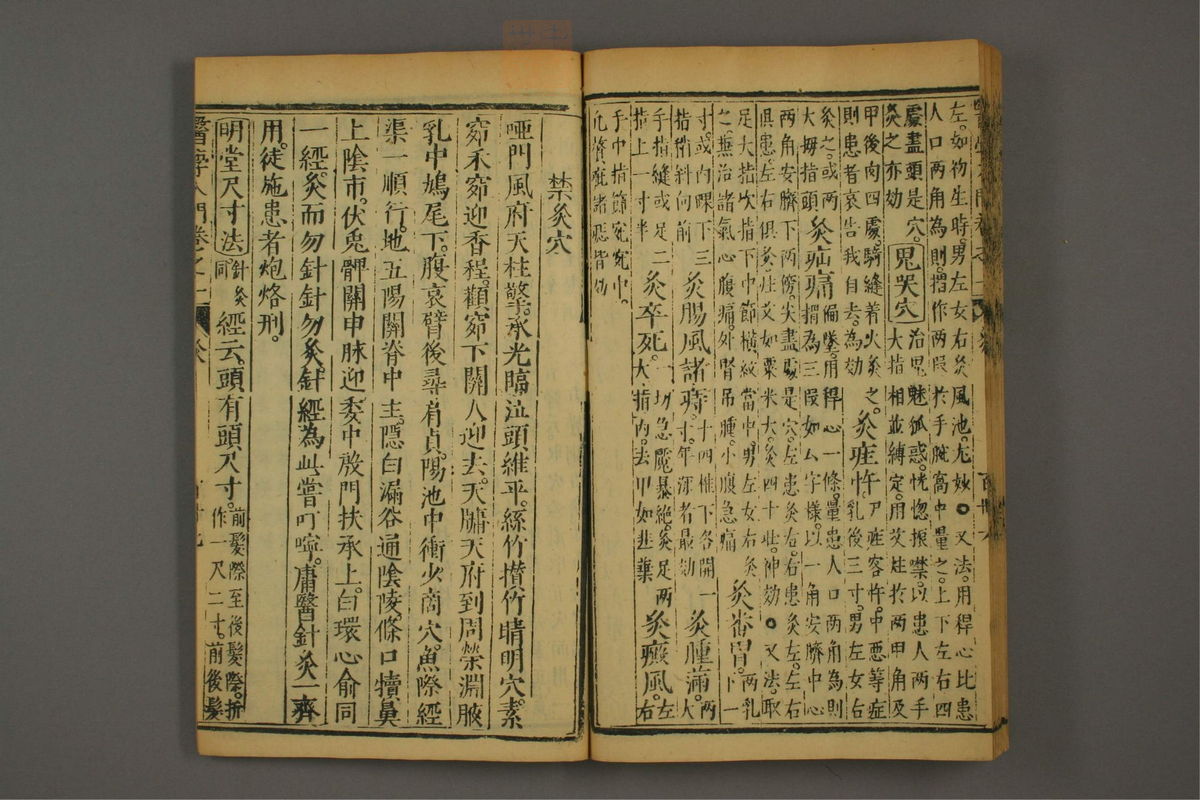 左。如初生時。男左女右灸風池。尤妙○又法。用稈心比患
人口兩角為則。摺作兩段於手腕窩中量之。上下左右四
處盡頭是穴。灸之亦効 鬼哭穴 治鬼魅狐惑。恍惚振噤。以患人兩手大指相並縛定。用艾炷於兩甲角及
甲後肉四處。騎縫着火灸之。則患者哀告我自去。為効 灸疰忤 尸疰客忤。中惡等症乳後三寸。男左女右
灸之。或兩大拇指頭 灸疝痛 偏墜。用稈心一條。量患人口兩角為則摺為三段如厶字樣。以一角安臍中心
兩角安臍下兩傍。尖盡處是穴。左患灸右。右患灸左。左右
俱患。左右俱灸。炷艾如粟米大。灸四十壯。神効○又法。取
足大指次指下中節橫紋當中。男左女右灸之。兼治諸氣心腹痛。外腎吊腫。小腹急痛 灸番胃。兩乳下一
寸。或內踝下三指稍斜向前 灸腸風諸痔。十四椎下各開一寸。年深者最効 灸腫滿。兩大
手指縫或足二指上一寸半 灸卒死。一切急魘暴絕。灸足兩大指內。去甲如韭葉 灸癜風。左右
手中指節宛宛中。凡贅疵諸痣皆効
禁灸穴
啞門風府天柱擎。承光臨泣頭維平。絲竹攢竹睛明穴。素
窌禾窌迎香程。顴窌下關人迎去。天牖天府到周榮。淵腋
乳中鳩尾下。腹哀臂後尋肩貞。陽池中衝少商穴。魚際經
渠一順行。地五陽關脊中主。隱白漏谷通陰陵。條口犢鼻
上陰市。伏兎髀關申脉迎。委中殷門扶承上。白環心俞同
一經。灸而勿針針勿灸。針經為此嘗叮嚀。庸醫針灸一齊
用。徒施患者炮烙刑。
明堂尺寸法。針灸同 經云。頭有頭尺寸。前髮際至後髮際。折作一尺二寸。前後髮
醫學入門卷之二 灸